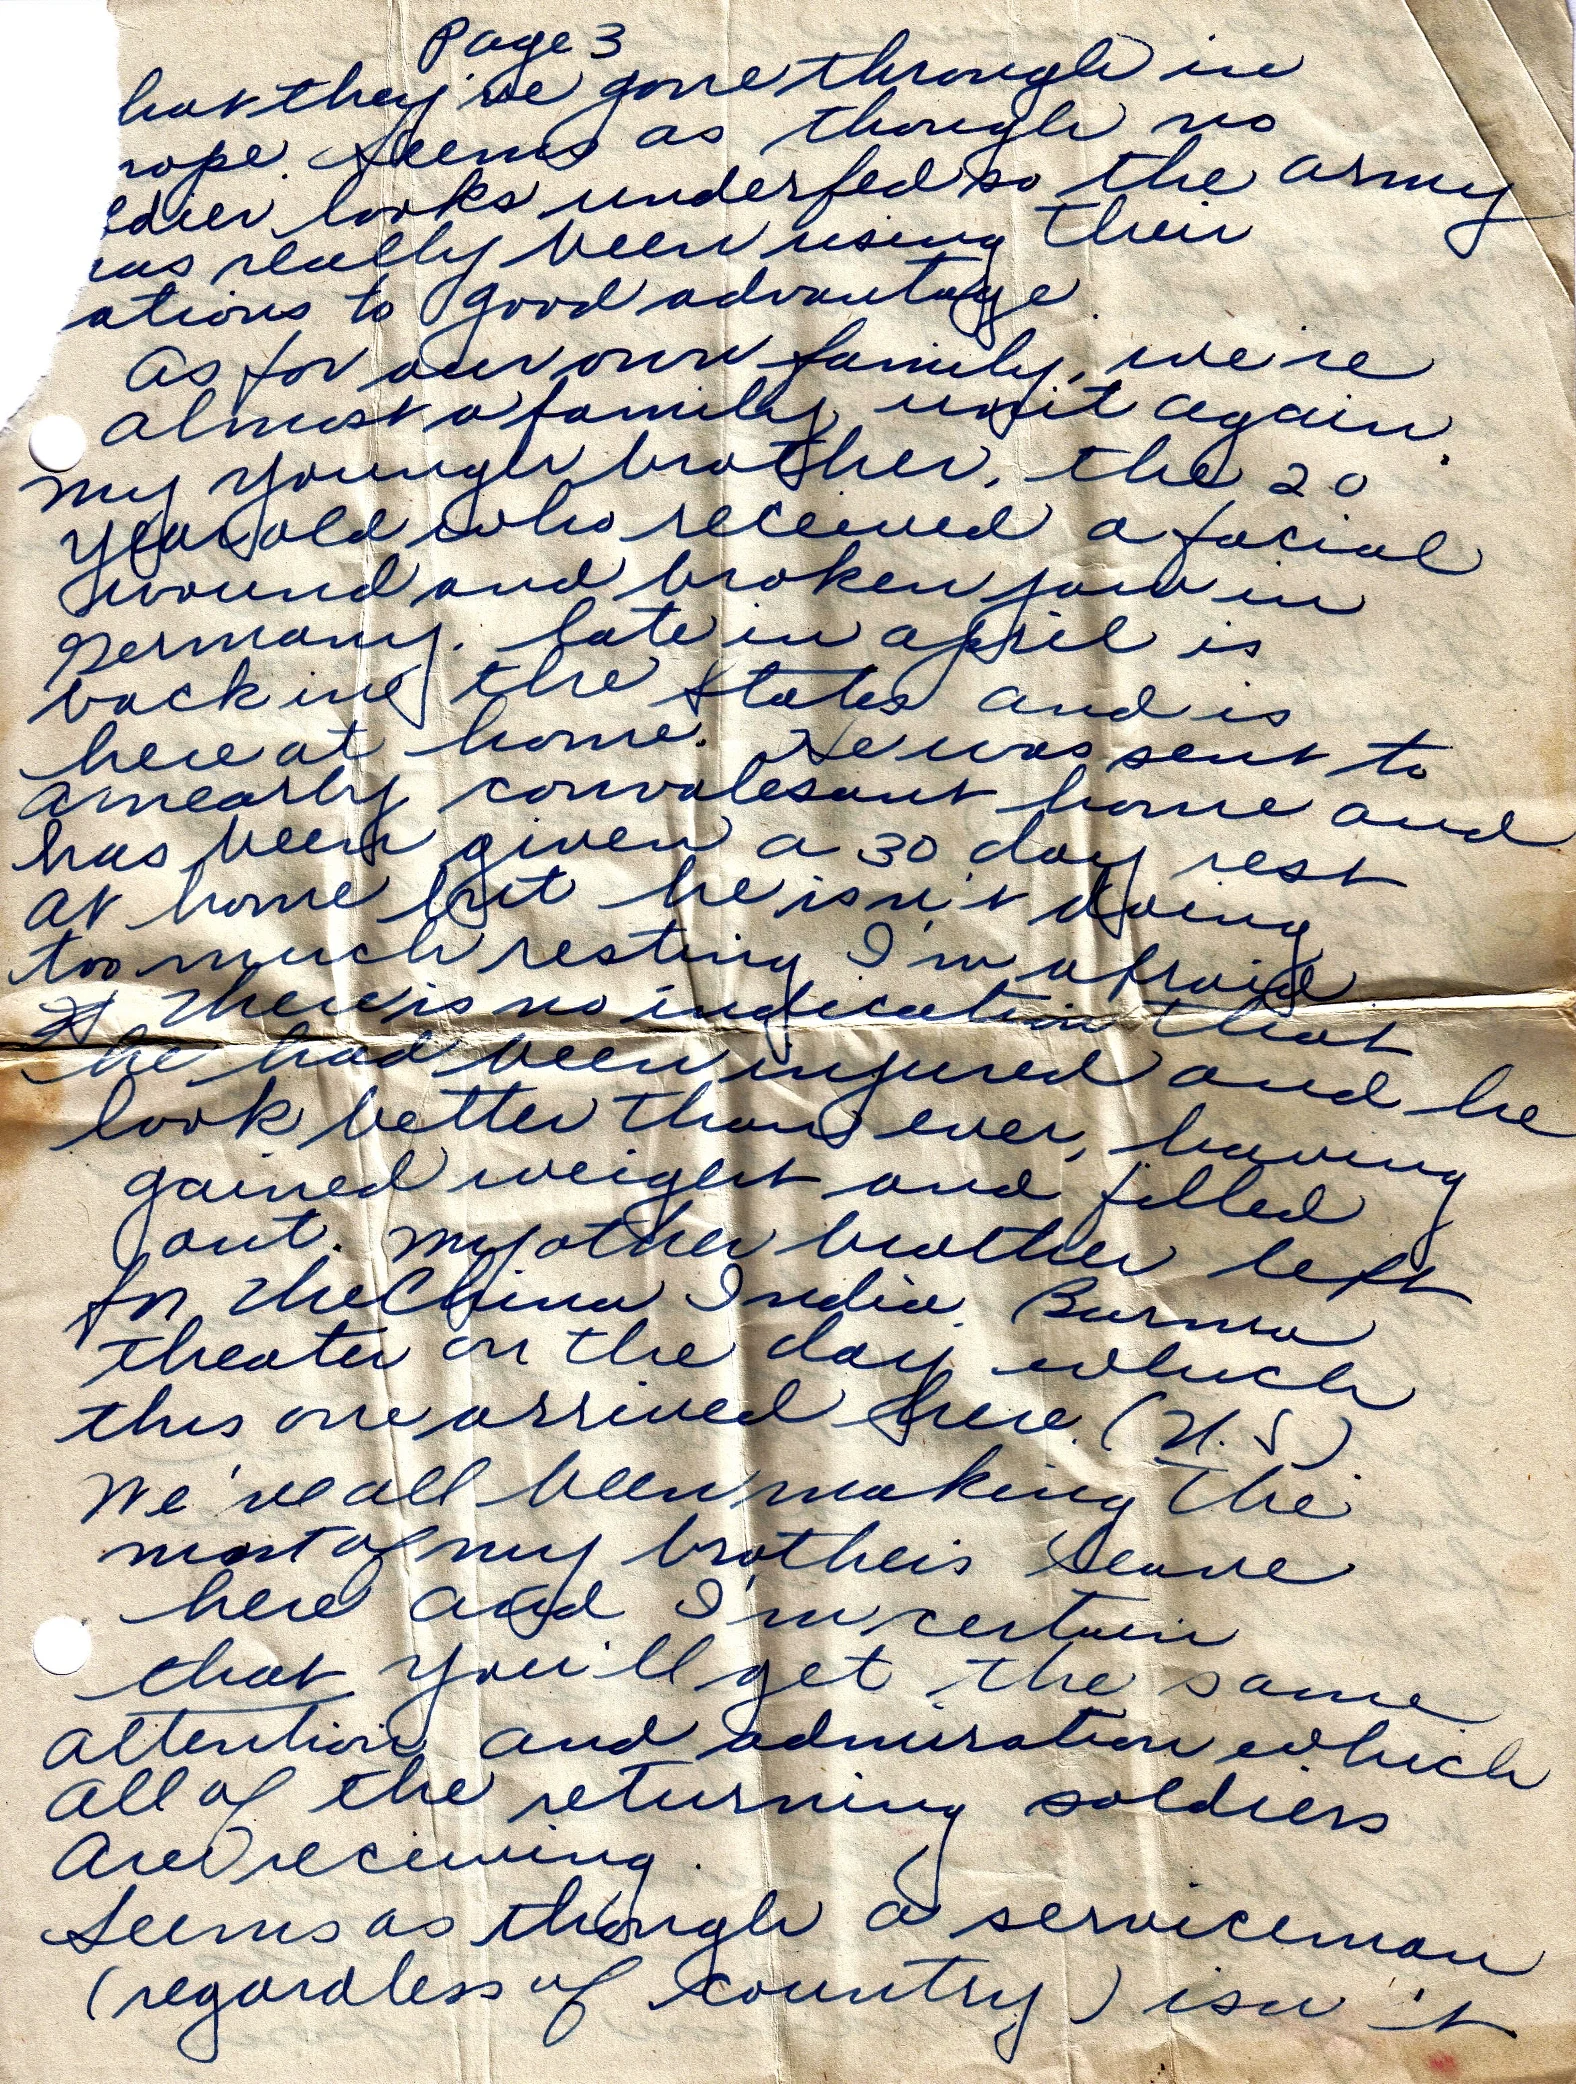 Page 3
hat they've gone through in
rope. Seems as though no
ldier looks underfed so the army
has really been using their
ations to good advantage.
As for our own family, we're
almost a family unit again.
My younger brother, the 20
year old who received a facial
wound and broken jaw in
Germany. late in April is
back in the States and is
here at home. He was sent to
a nearby convalesant home and
has been given a 30 day rest
at home but he isn't doing
too much resting I'm afraid
There is no indication that
he had been injured and he
look better than ever, having
gained weight and filled
out. My other brother left
for the China India Burma
theater on the day which
this one arrived here. (U.S)
We've all been making the
most of my brothers leave
here and I'm certain
that you'll get the same
attention and admiration which
all of the returning soldiers
are receiving.
Seems as though a serviceman
(regardless of country) isn't